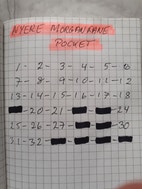 NYERE MORGAN KANE
POCKET
1 - 2 - 3 - 4 - 5 - 6
7 - 8 - 9 - 10 - 11 - 12
13 - 14 - 15 - 16 - 17 - 18
- 20 - 21 - - - 24
25 - 26 - 27 - - - 30
31 - 32 - - - -